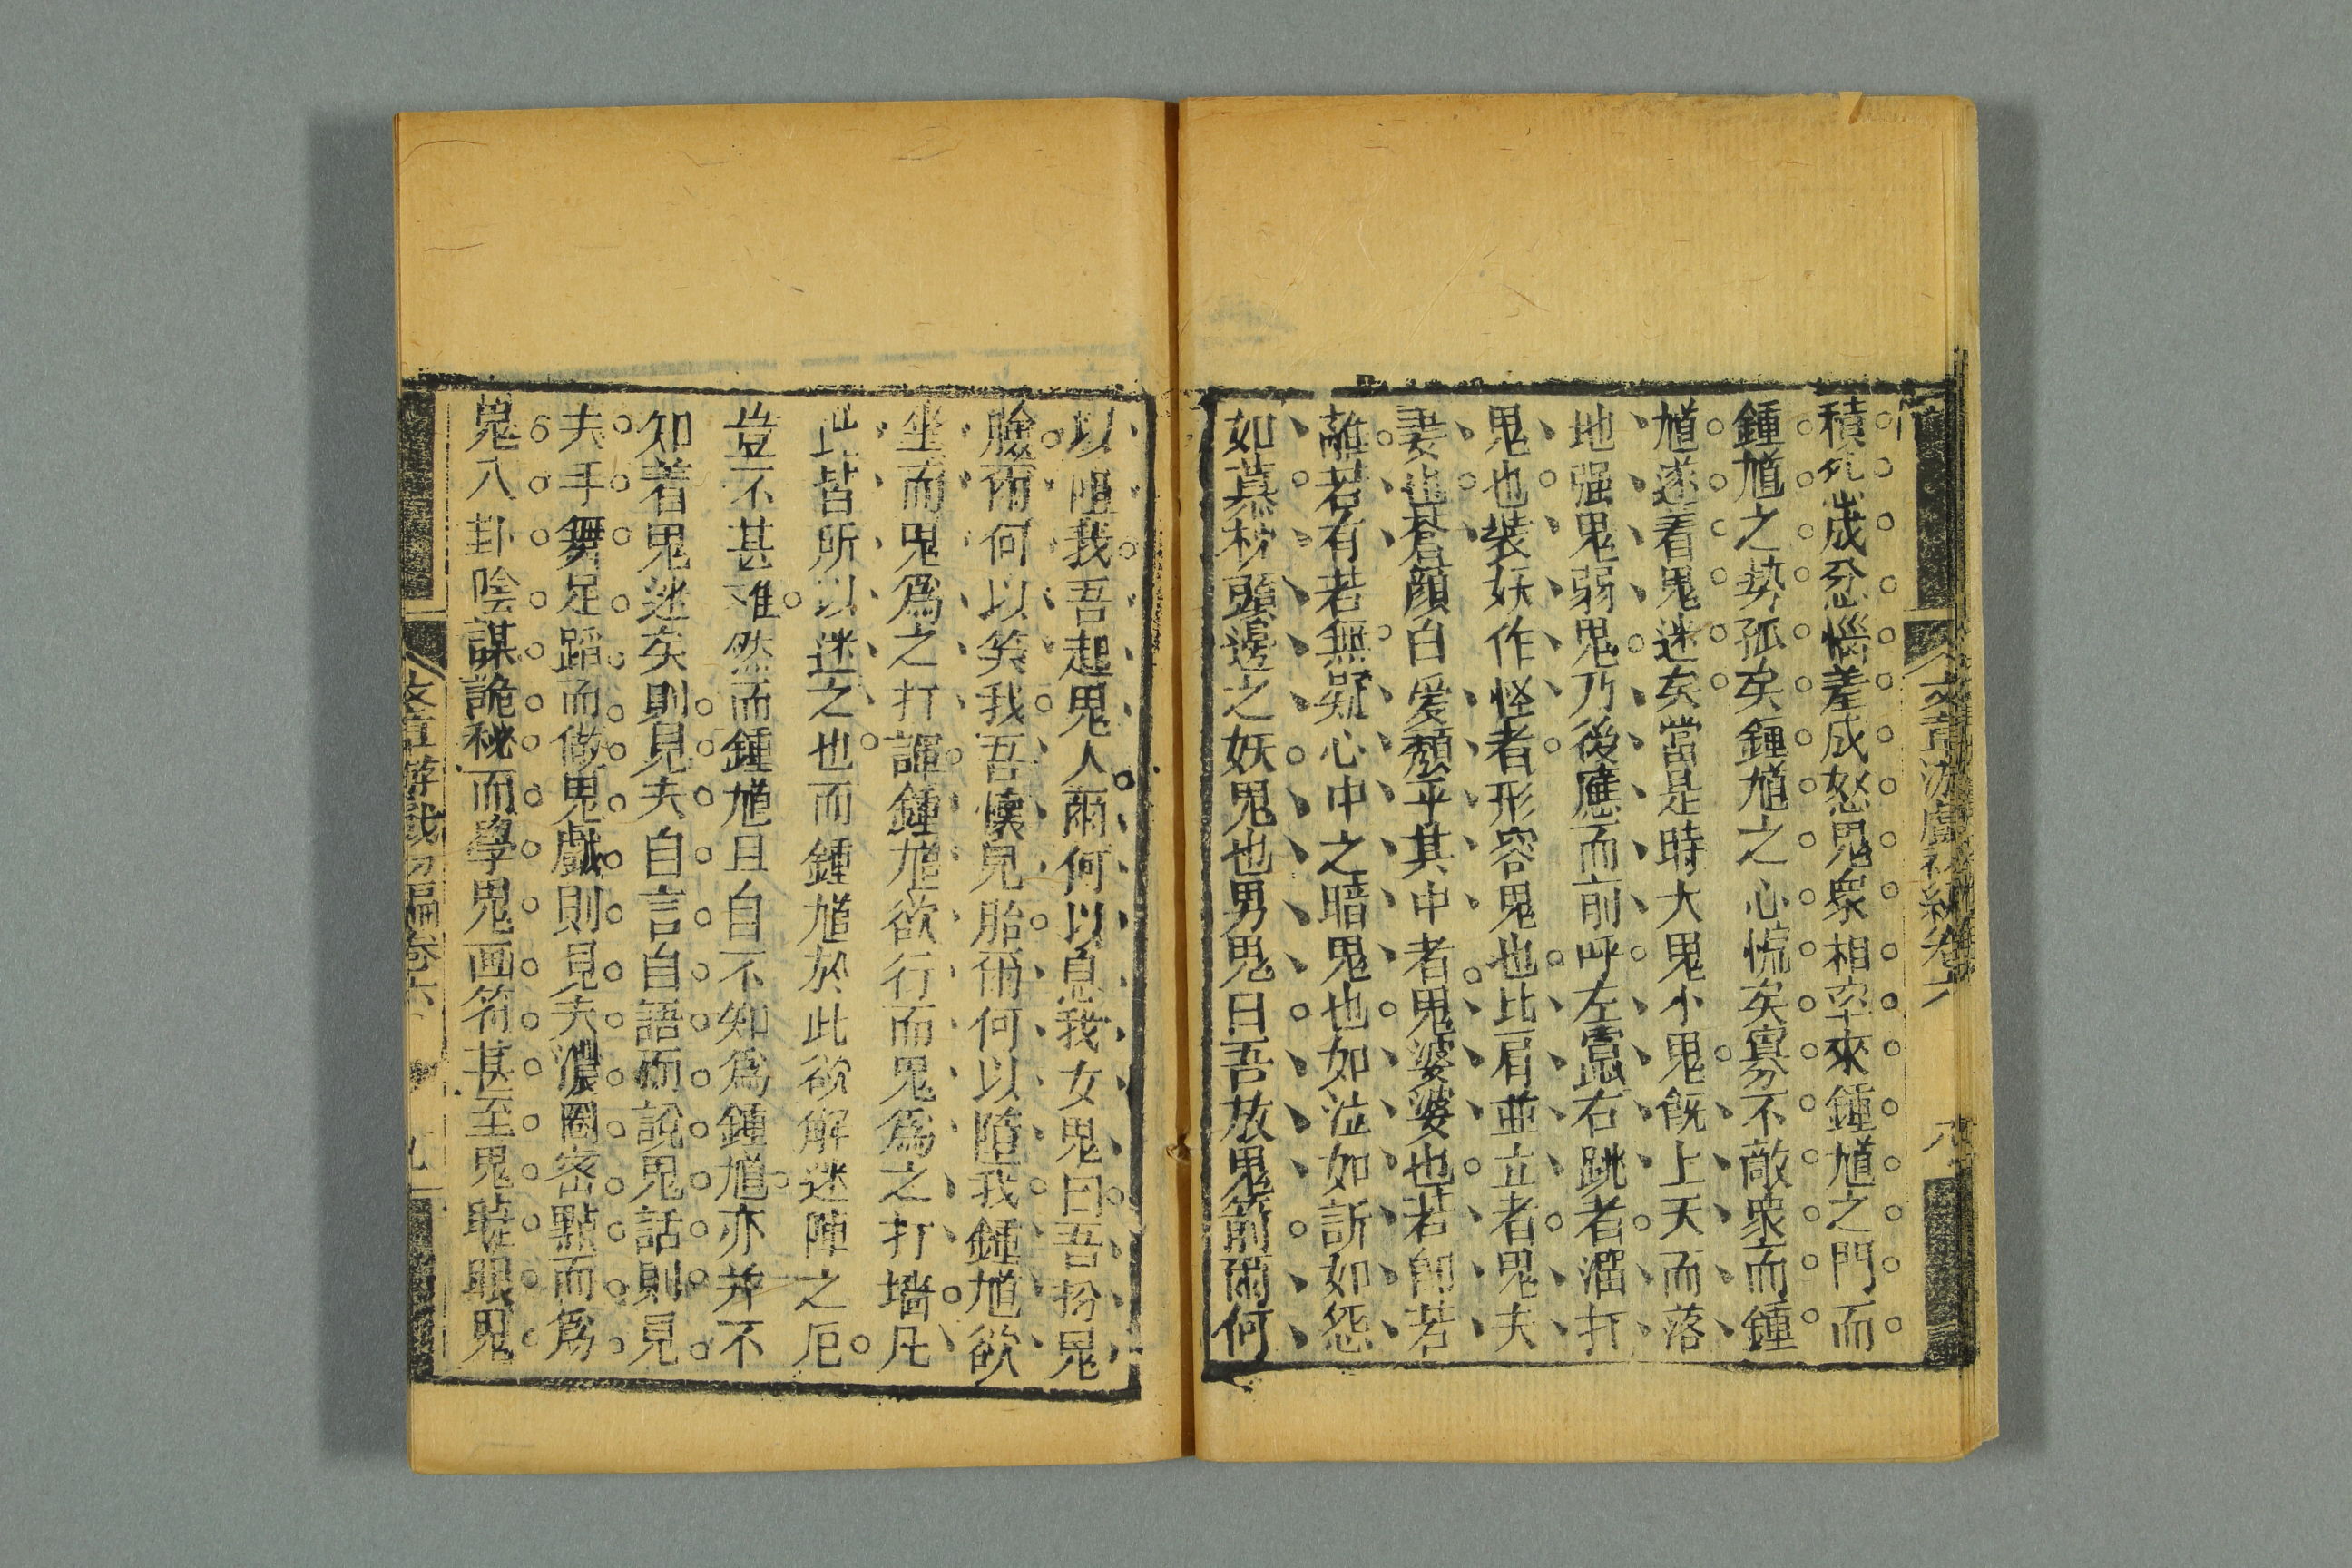 文章游戲初編卷六 八
積羞成忿惱羞成怒鬼衆相率來鍾馗之門而
鍾馗之勢孤矣鍾馗之心慌矣寡不敵衆而鍾
馗遂着鬼迷矣當是時大鬼小鬼旣上天而落
地强鬼弱鬼乃後應而前呼左竄右跳者溜打
鬼也裝妖作怪者形容鬼也比肩並立者鬼夫
妻也蒼顔白髮頽乎其中者鬼婆婆也若卽若
離若有若無疑心中之暗鬼也如泣如訴如怨
如慕枕頭邊之妖鬼也男鬼曰吾放鬼箭爾何
以阻我吾起鬼人爾何以息我女鬼曰吾扮鬼
臉爾何以笑我吾懷鬼胎爾何以墮我鍾馗欲
坐而鬼爲之打諢鍾馗欲行而鬼爲之打墻凡
此皆所以迷之也而鍾馗於此欲解迷陣之厄
豈不甚難然而鍾馗且自不知爲鍾馗亦并不
知着鬼迷矣則見夫自言自語而說鬼話則見
夫手舞足蹈而做鬼戲則見夫濃圈密點而爲
鬼八卦陰謀詭秘而學鬼画符甚至鬼眼鬼
文章游戲初編卷六 九